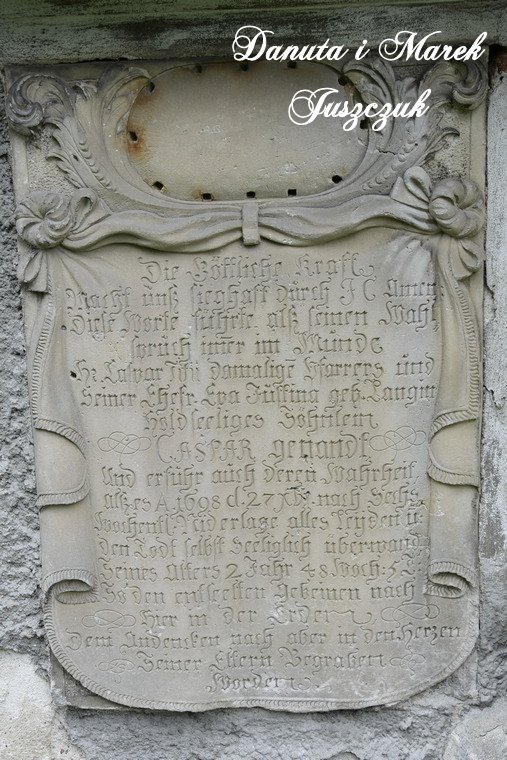 Danuta i Marek
Juszczuk
Die Göttliche Krafft
Macht unß sieghafft durch J C Amen
Diese Worte führte alß seinen Wahl
spruch im̅er im Munde
H. Caspar damaligē Pfarrers und
Seiner Ehefr. Eva Justina geb. Langin
Holdseeliges Söhnlein
CASPAR genandt
Und erfuhr auch deren Wahrheit
alß es A. 1698 d. 27 Xbr. nach Sechs
Wochentl. Niderlage alles Leyden u.
den Todt selbst Seeliglich überwand
Seines Alters 2 Jahr 48 Woch: 5
So den entseelten Gebeinen nach
Hier in der Erden
Dem Andencken nach aber in den Herzen
Seiner Eltern Begraben
Worden